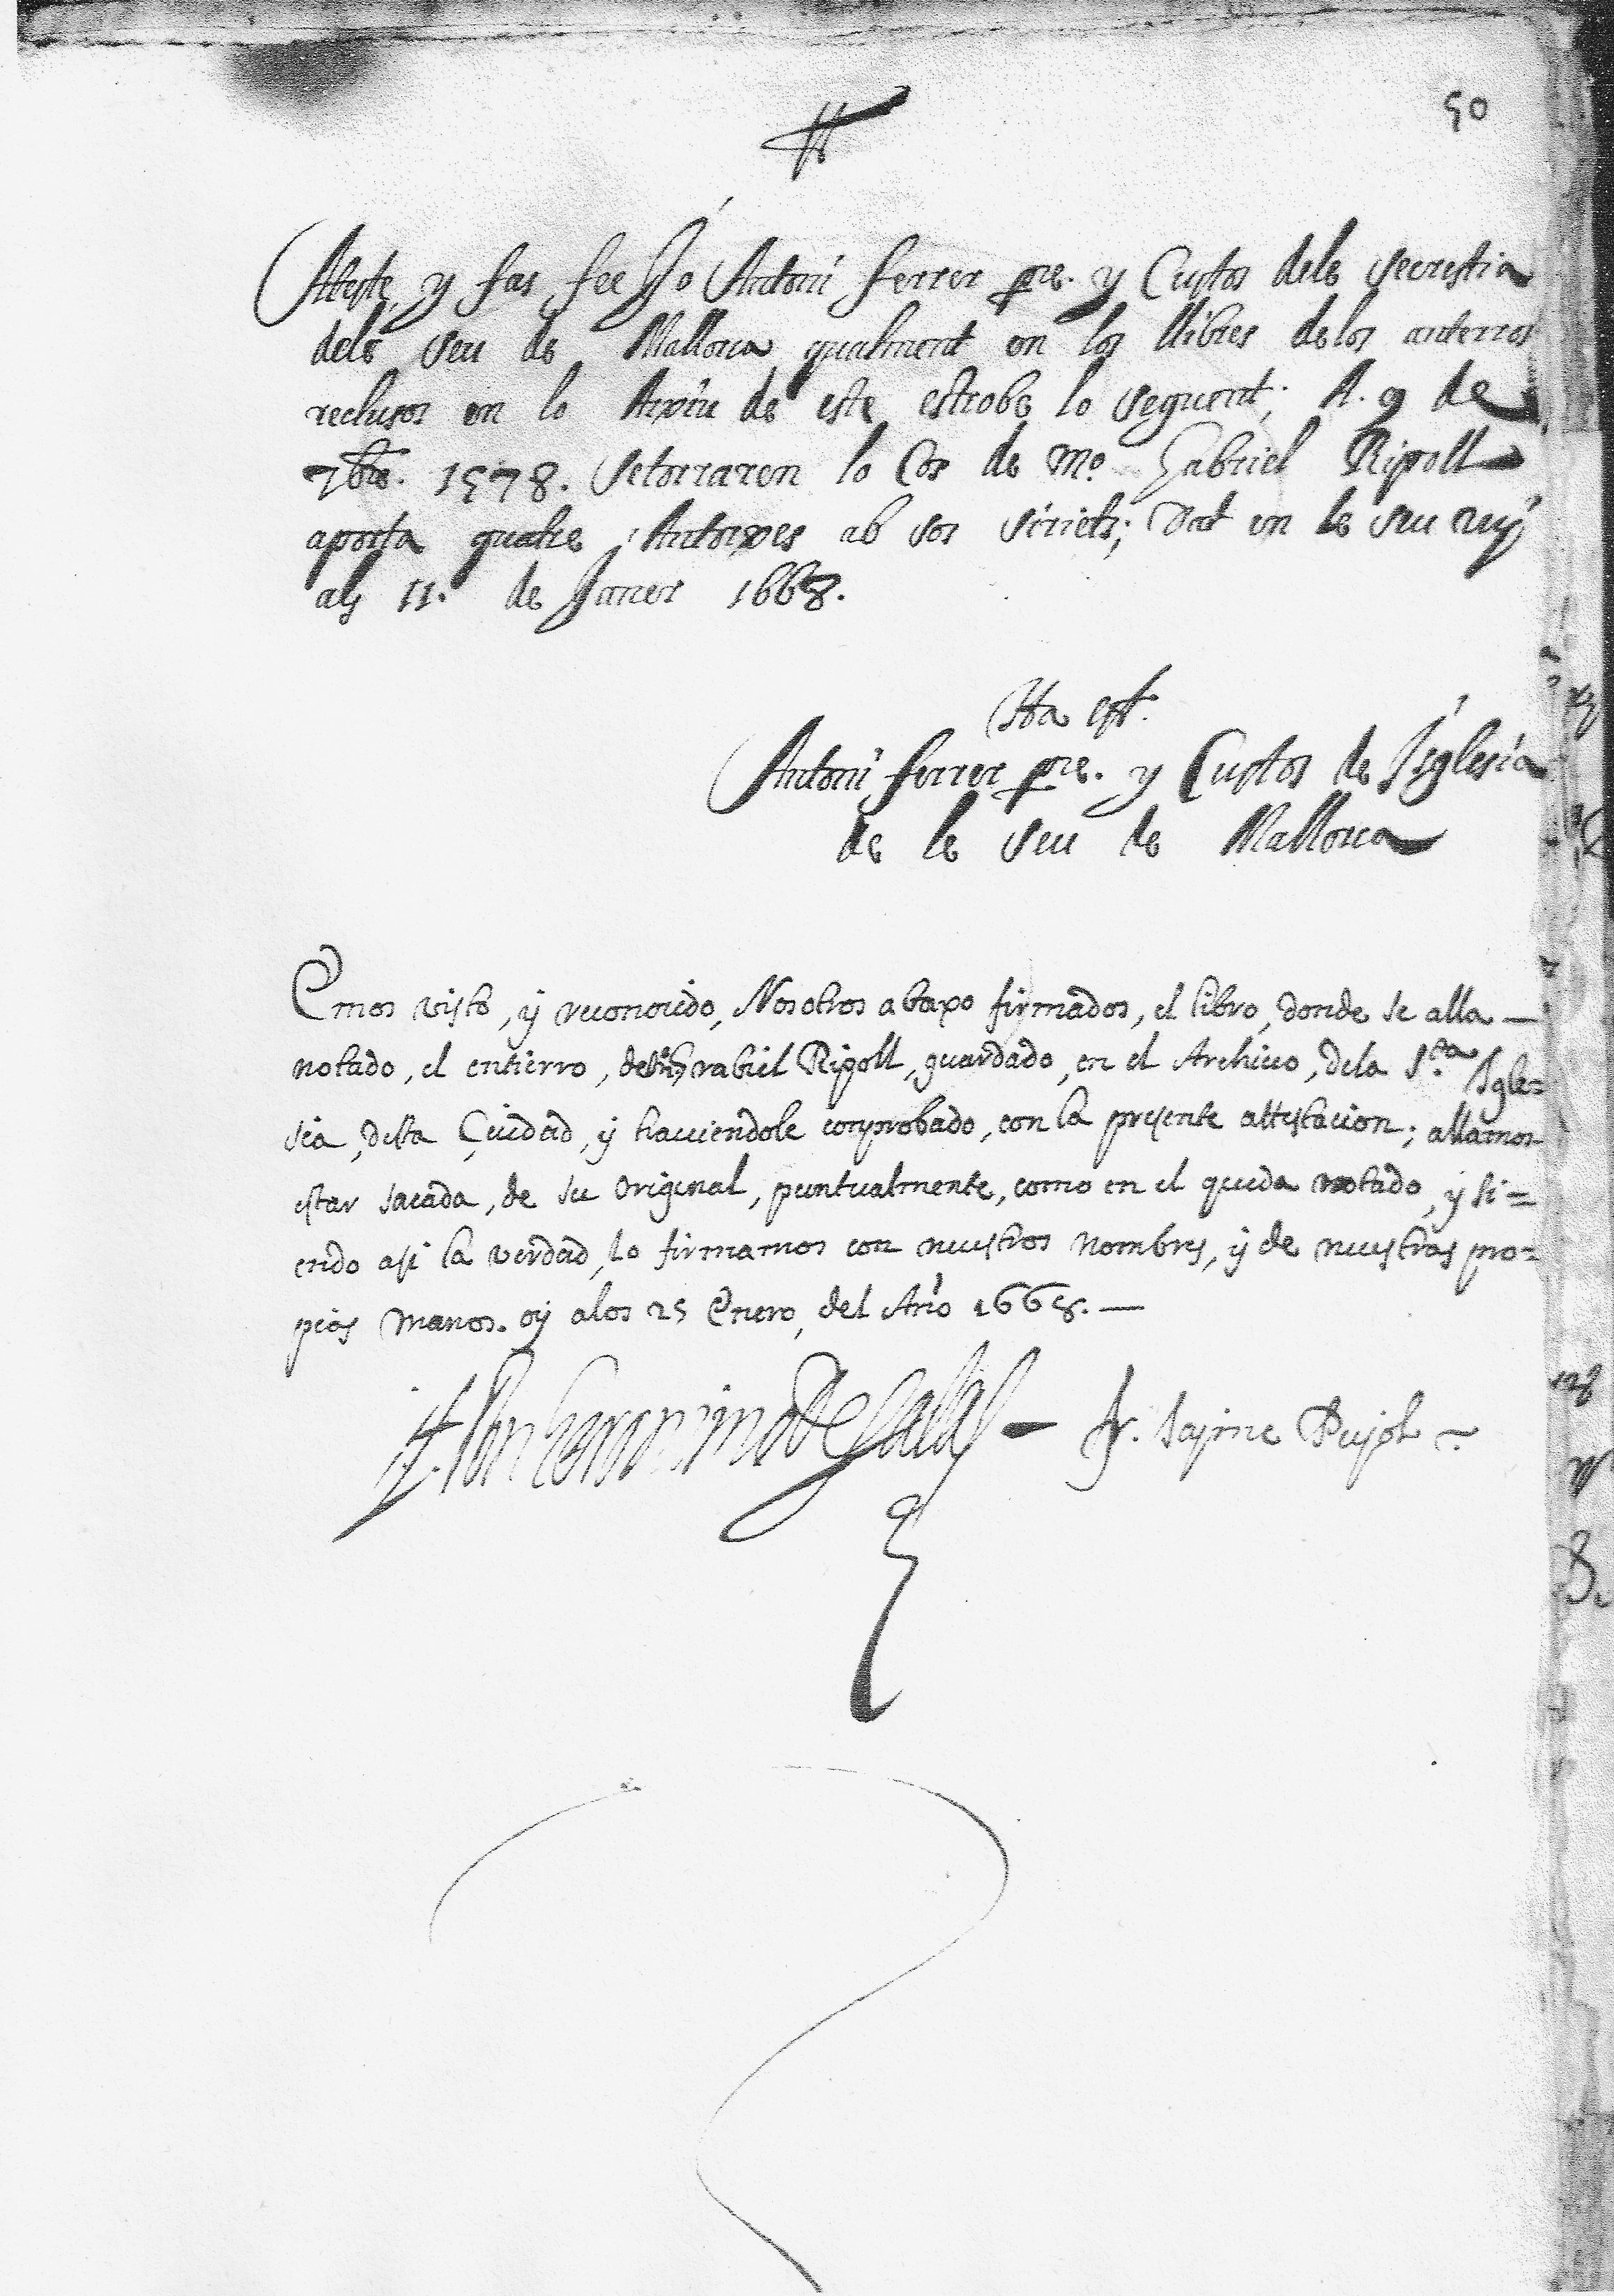 50
Ateste y fas fee Jo Antoni ferrer pre. y Custos dele secrestia
dele seu de Mallorca qualment en los llibres delos anterros
reclusos en lo Arxiu de este estrobe lo seguent; A. 9 de
7bre. 1578. Setorraren lo Cos de Mo. Gabriel Ripoll
aporta quatre Antorxes ab sos siriets; Dat en le seu
als 11. de Janer 1668.
Ita est.
Antoni ferrer pre. y Custos de Iglesia
de le seu de Mallorca
Emos visto, y reconocido, Nosotros abaxo firmados, el libro, donde se alla —
notado, el entierro, de Grabiel Ripoll, guardado, en el Archivo, dela S.ta Igle=
sia, desta Ciudad, y haviendole comprobado, con la presente attestacion; allamos
estar sacada, de su original, puntualmente, como en el queda notado, y si=
endo asi la verdad, lo firmamos con nuestros nombres, y de nuestras pro=
pias manos. oy alos 25 Enero, del Año 1668. —
Don Geronimo de Salas — fr. Jayme Pujol